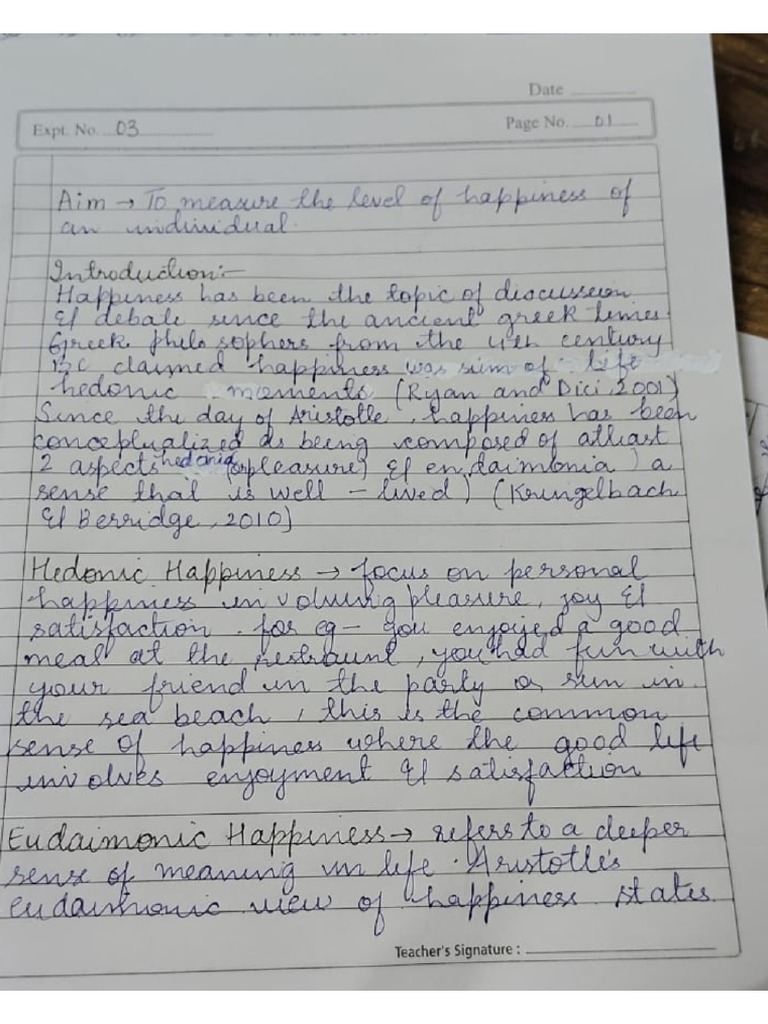 Date
Expt. No. 03
Page No. 01
Aim → To measure the level of happiness of
an individual.
Introduction:-
Happiness has been the topic of discussion
& debate since the ancient greek times
Greek philosophers from the 4th century
BC claimed happiness was sum of life
hedonic moments (Ryan and Dici, 2001)
Since the day of Aristotle, happiness has been
conceptualized as being composed of atleast
2 aspects hedonia (pleasure) & eudaimonia) a
sense that is well - lived) (Krungelbach
& Berridge, 2010)
Hedonic Happiness → focus on personal
happiness involving pleasure, joy &
satisfaction. for eg - you enjoyed a good
meal at the restraunt, you had fun with
your friend in the party or sun in
the sea beach, this is the common
sense of happiness where the good life
involves enjoyment & satisfaction
Eudaimonic Happiness → refers to a deeper
sense of meaning in life. Aristotle's
eudaimonic view of happiness states
Teacher's Signature :